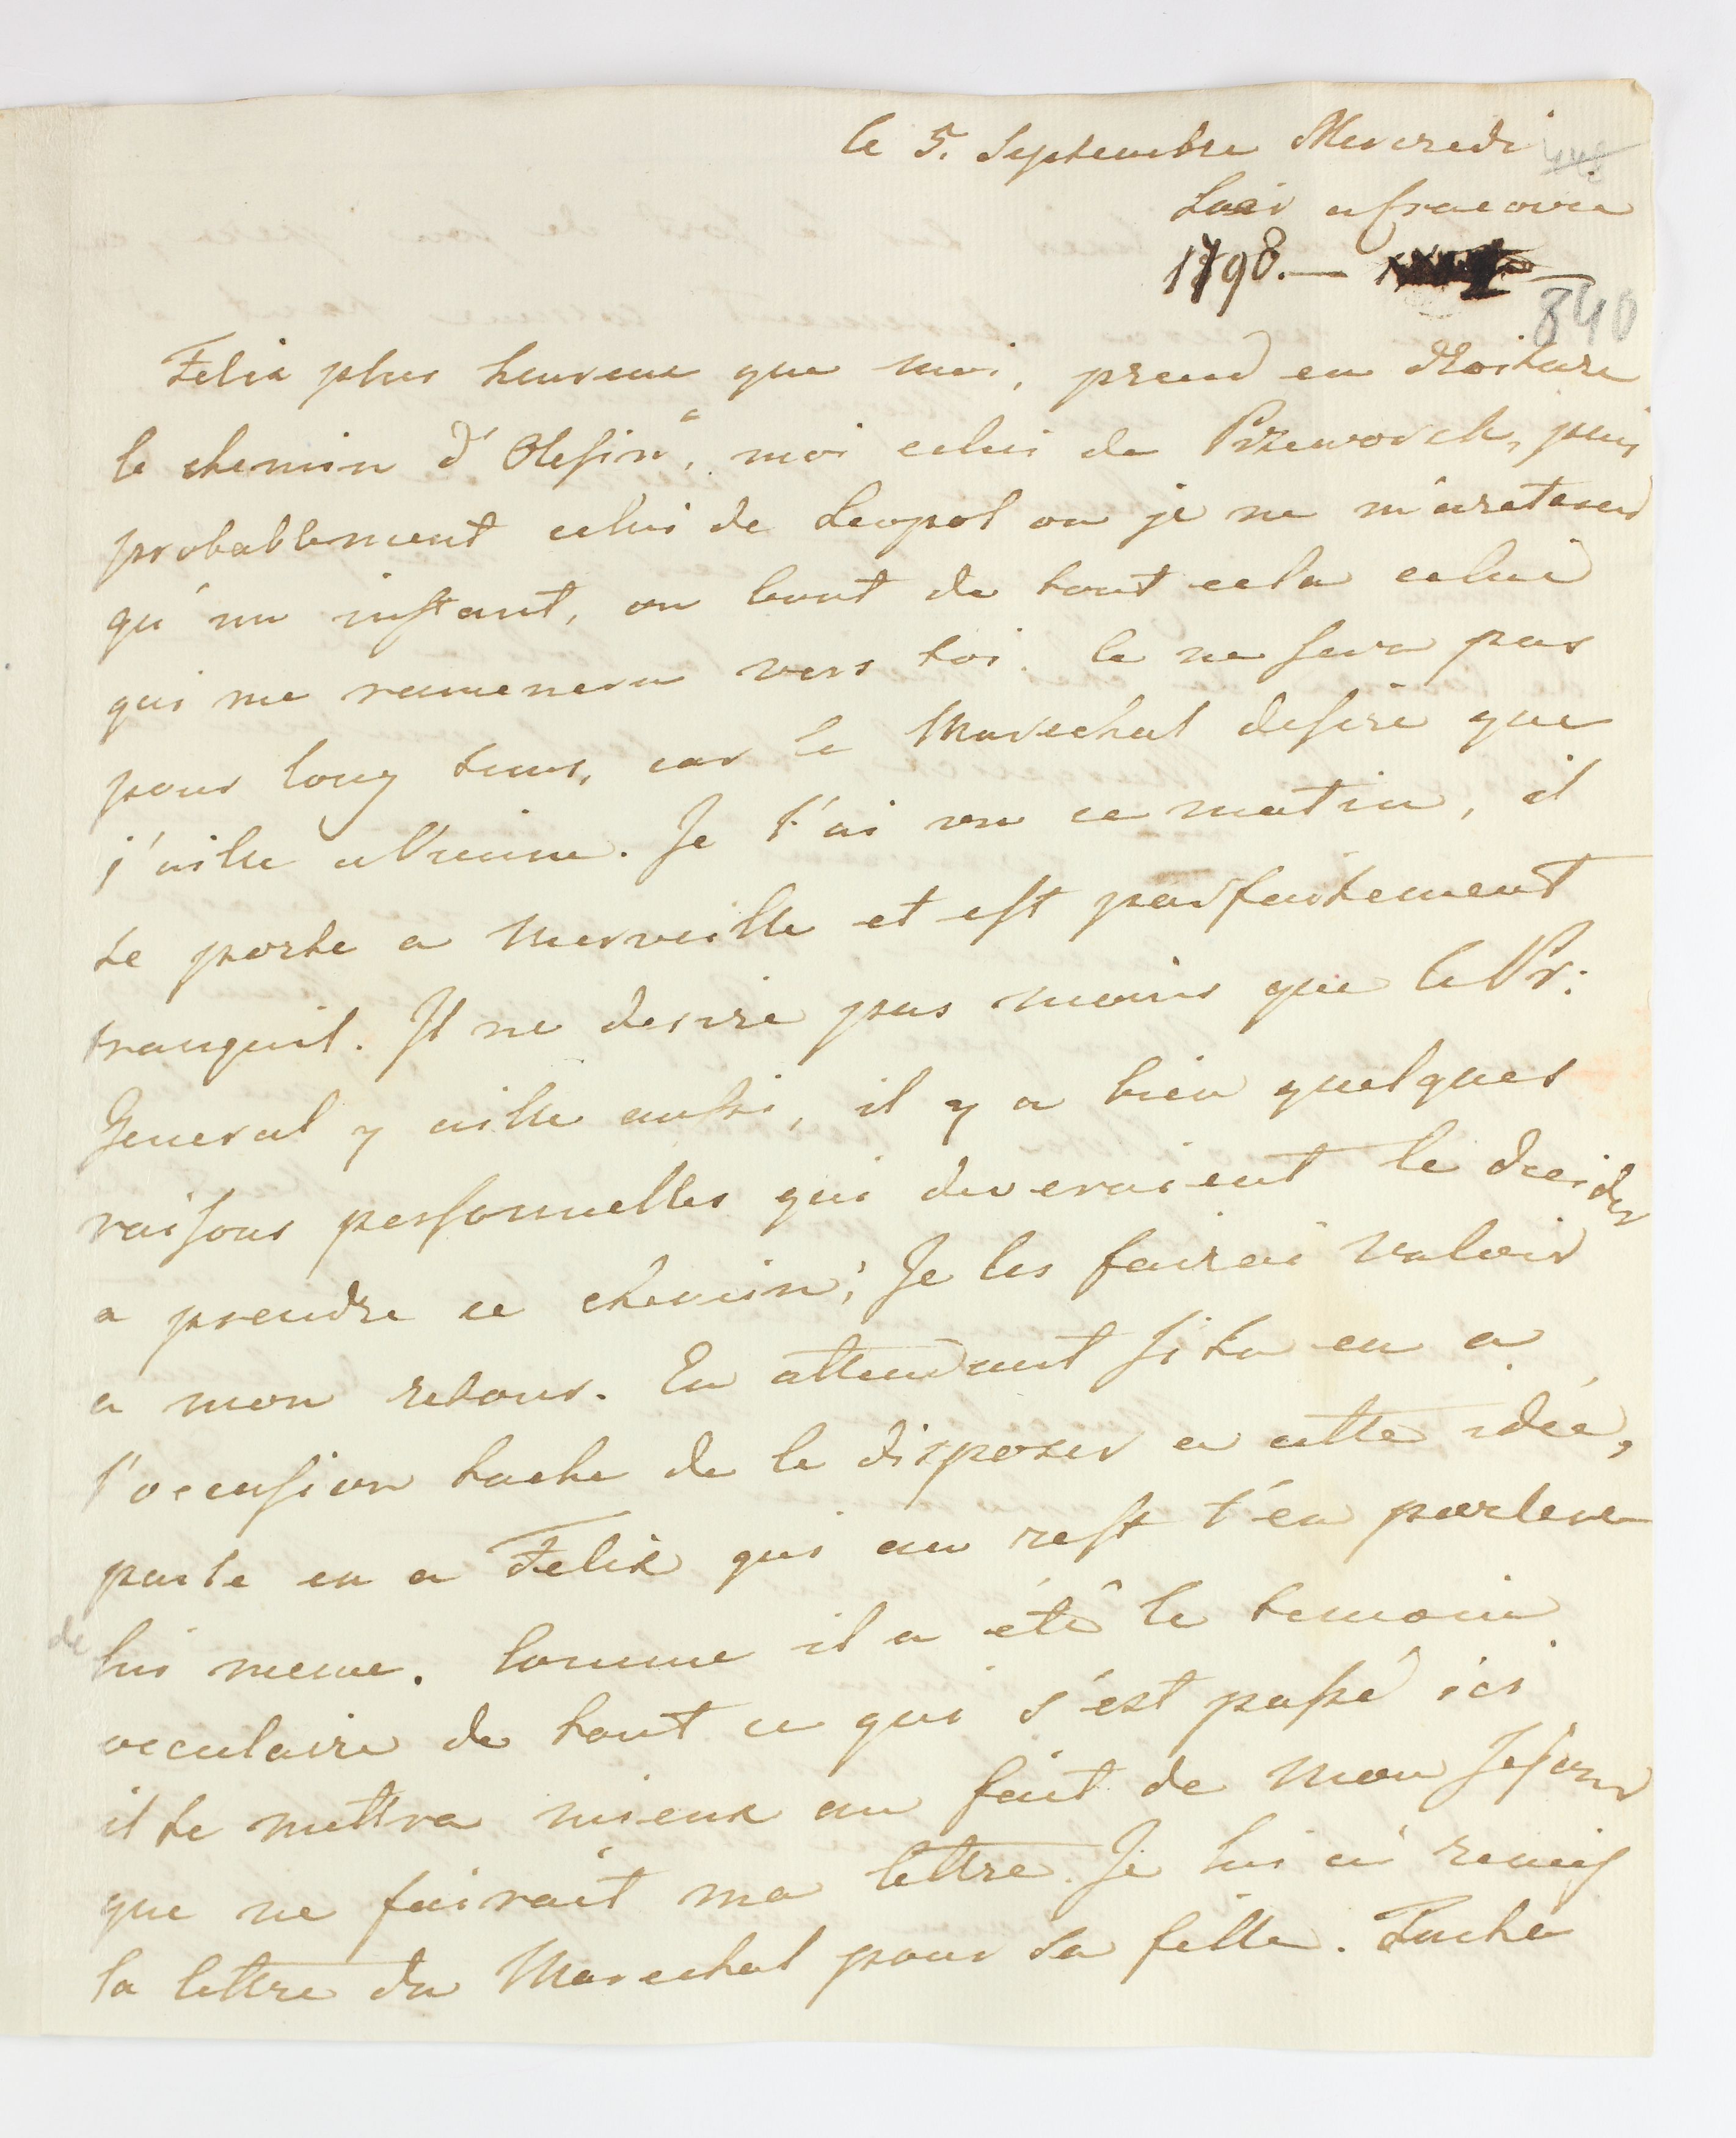 le 5. Septembre Mercredi
Soir a Cracovie
1798.—
840
Felix plus heureux que moi, prend en droiture
le chemin d'Olesin, moi celui de Przeworsk, puis
probablement celui de Leopol ou je ne m'areterai
qu'un instant, au bout de tout cela celui
qui me ramenera vers toi. Ce ne sera pas
pour long tems, car le Marechal desire que
j'aille a Vienne. Je l'ai vu ce matin, il
se porte a merveille et est parfaitement
tranquil. Il ne desire pas moins que le Pr:
General y aille aussi, il y a bien quelques
raisons personnelles qui deveraient le decider
a prendre ce chemin; Je les fairai valoir
a mon retour. En attendant si tu en a
l'occasion tache de le disposer a cette idée,
parle en a Felix qui au rest t'en parlera
de
lui meme. Comme il a été le temoin
occulaire de tout ce qui s'est passé ici
il te mettra mieux au fait de mon Sejour
que ne fairait ma lettre. Je lui ai remis
la lettre du Marechal pour sa fille. Tache